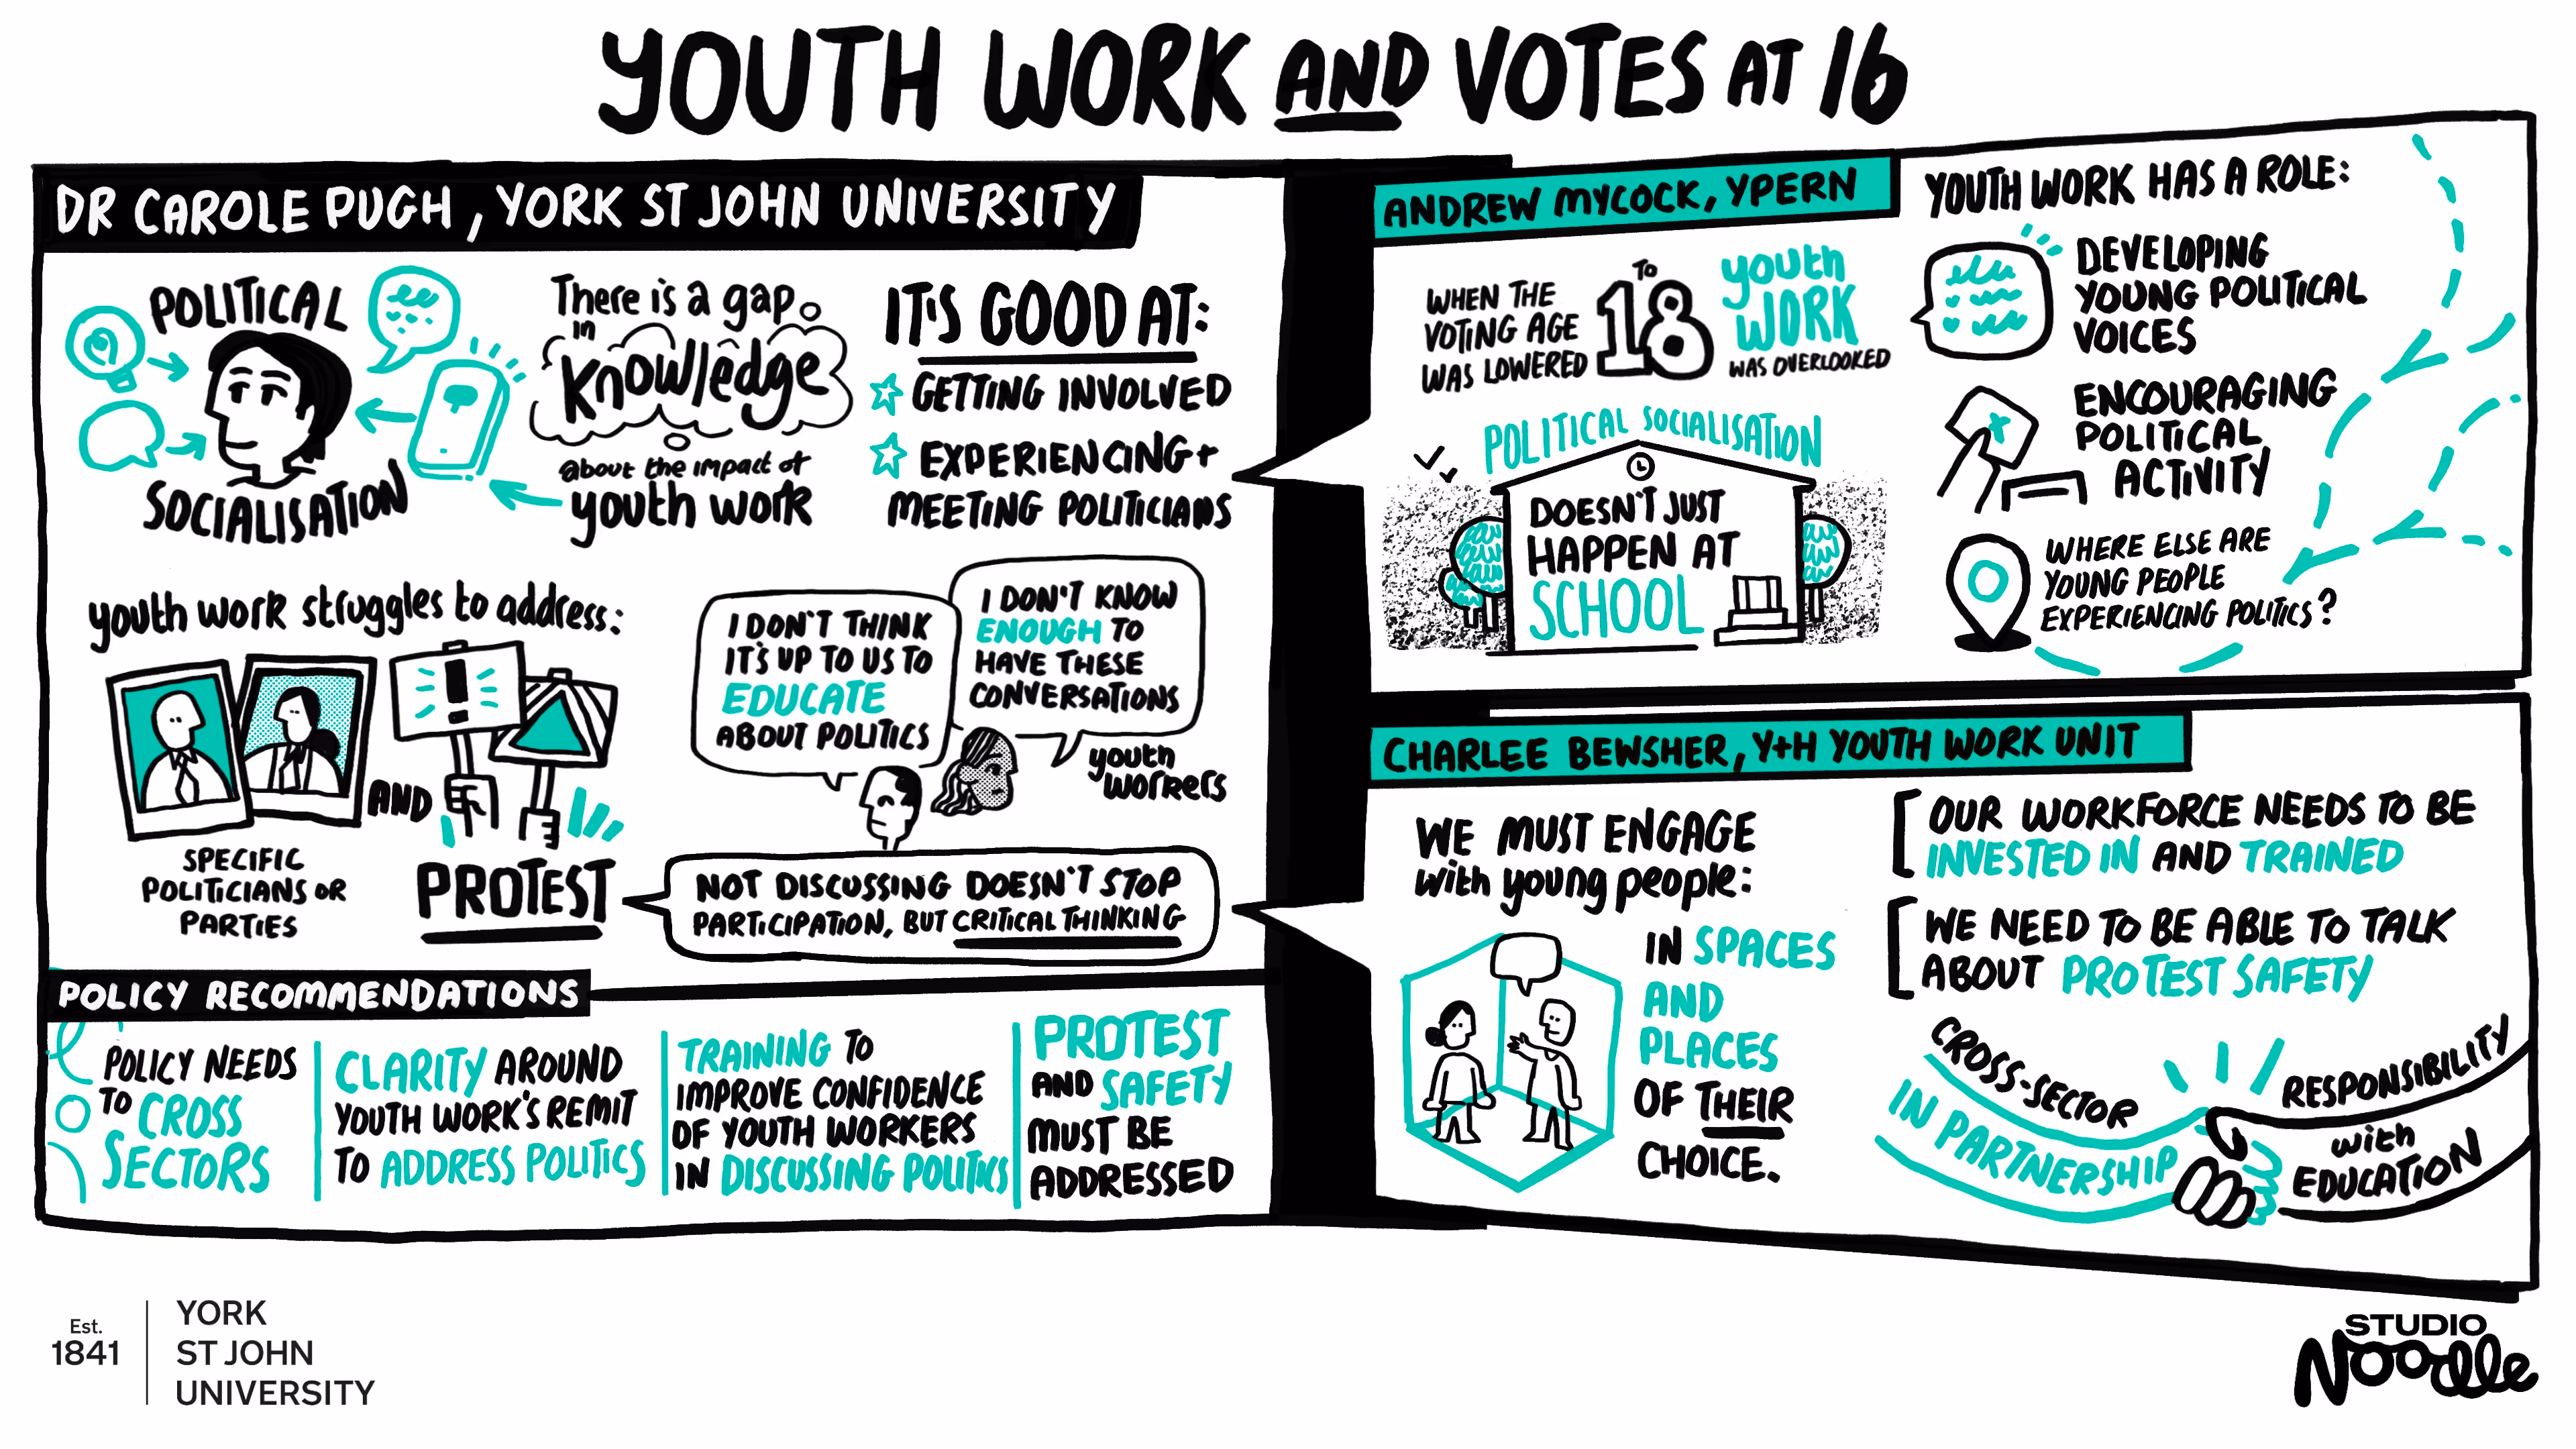 YOUTH WORK AND VOTES AT 16
DR CAROLE PUGH, YORK ST JOHN UNIVERSITY
POLITICAL
SOCIALISATION
There is a gap
in
Knowledge
about the impact of
youth work
IT'S GOOD AT:
GETTING INVOLVED
EXPERIENCING +
MEETING POLITICIANS
youth work struggles to address:
SPECIFIC
POLITICIANS OR
PARTIES
AND
PROTEST
I DON'T THINK
IT'S UP TO US TO
EDUCATE
ABOUT POLITICS
I DON'T KNOW
ENOUGH TO
HAVE THESE
CONVERSATIONS
youth
workers
NOT DISCUSSING DOESN'T STOP
PARTICIPATION, BUT CRITICAL THINKING
POLICY RECOMMENDATIONS
POLICY NEEDS
TO CROSS
SECTORS
CLARITY AROUND
YOUTH WORK'S REMIT
TO ADDRESS POLITICS
TRAINING TO
IMPROVE CONFIDENCE
OF YOUTH WORKERS
IN DISCUSSING POLITICS
PROTEST
AND SAFETY
MUST BE
ADDRESSED
ANDREW MYCOCK, YPERN
WHEN THE
VOTING AGE
WAS LOWERED
TO
18
youth
WORK
WAS OVERLOOKED
POLITICAL SOCIALISATION
DOESN'T JUST
HAPPEN AT
SCHOOL
YOUTH WORK HAS A ROLE:
DEVELOPING
YOUNG POLITICAL
VOICES
ENCOURAGING
POLITICAL
ACTIVITY
WHERE ELSE ARE
YOUNG PEOPLE
EXPERIENCING POLITICS?
CHARLEE BEWSHER, Y+H YOUTH WORK UNIT
WE MUST ENGAGE
with young people:
IN SPACES
AND
PLACES
OF THEIR
CHOICE.
OUR WORKFORCE NEEDS TO BE
INVESTED IN AND TRAINED
WE NEED TO BE ABLE TO TALK
ABOUT PROTEST SAFETY
CROSS-SECTOR
RESPONSIBILITY
IN PARTNERSHIP
with
EDUCATION
Est.
1841
YORK
ST JOHN
UNIVERSITY
STUDIO
Noodle